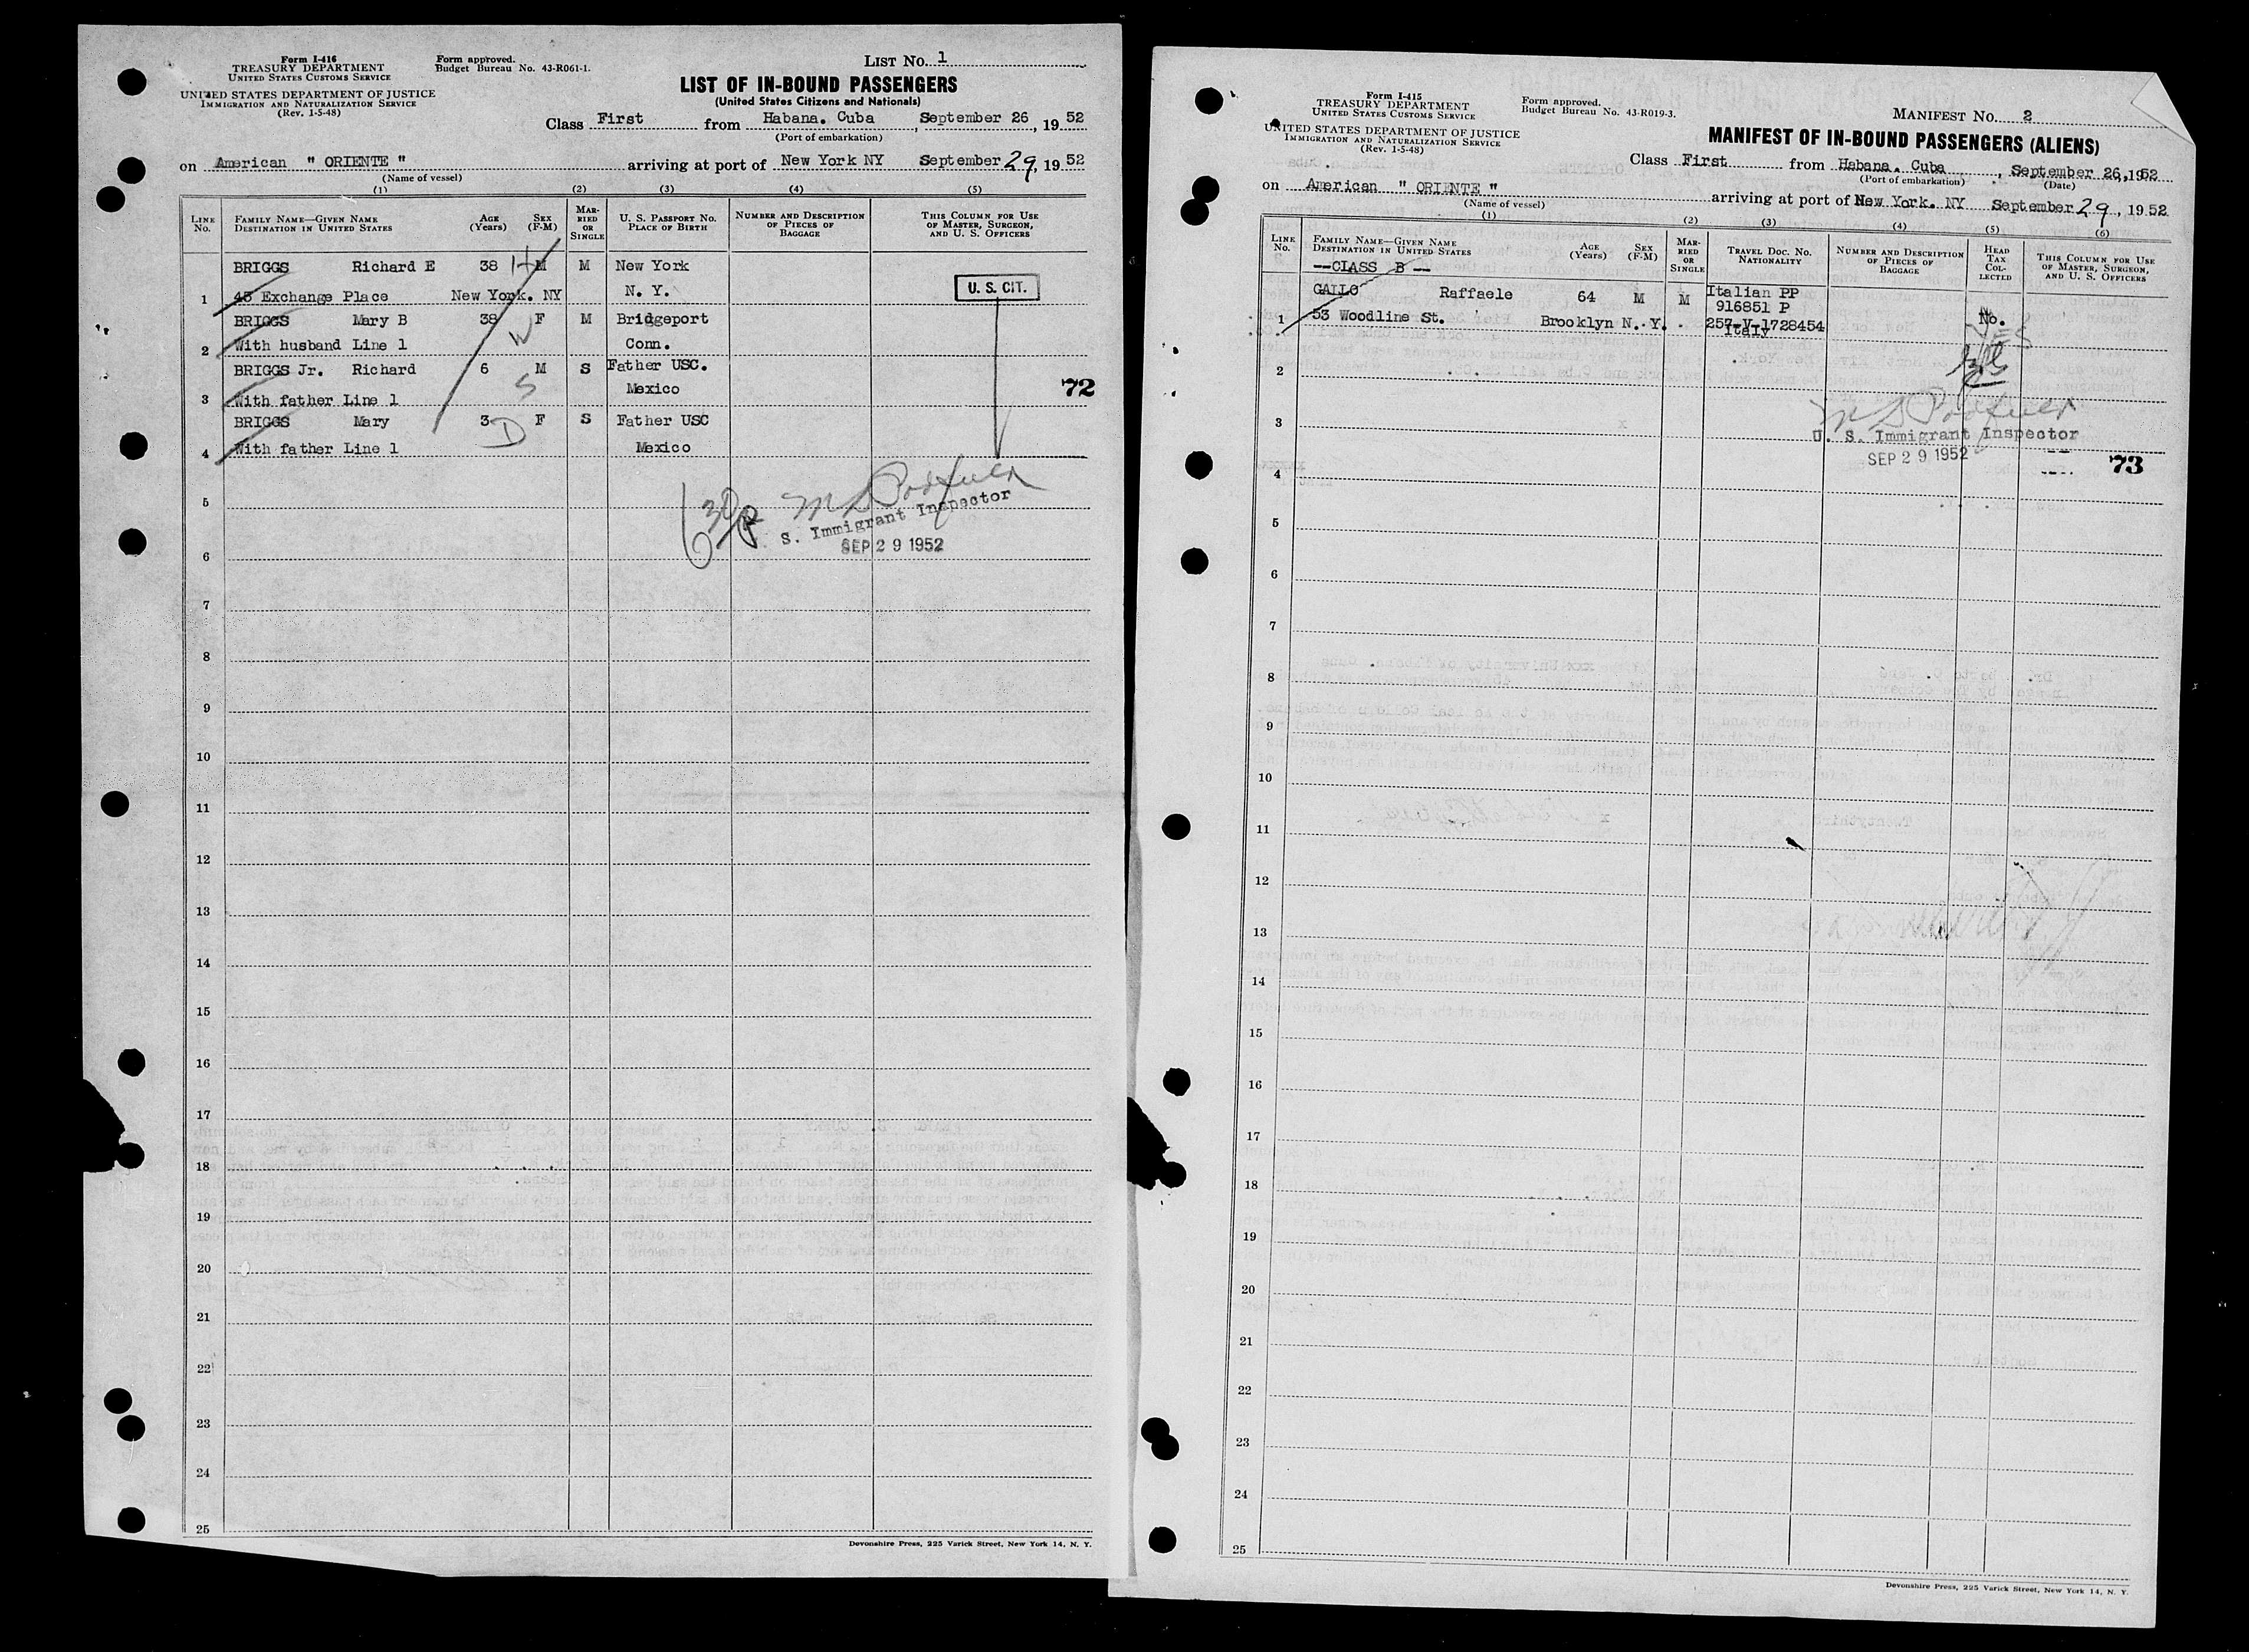 Form I-416
TREASURY DEPARTMENT
UNITED STATES CUSTOMS SERVICE
UNITED STATES DEPARTMENT OF JUSTICE
IMMIGRATION AND NATURALIZATION SERVICE
(Rev. 1-5-48)
Form approved.
Budget Bureau No. 43-R061-1.
LIST NO. 1
LIST OF IN-BOUND PASSENGERS
(United States Citizens and Nationals)
Class First from Habana. Cuba, September 26, 1952
(Port of embarkation)
on American " ORIENTE " arriving at port of New York NY September 29, 1952
(Name of vessel)
(1) (2) (3) (4) (5)
LINE NO.
FAMILY NAME—GIVEN NAME
DESTINATION IN UNITED STATES
AGE (Years)
SEX (F-M)
MARRIED OR SINGLE
U. S. PASSPORT NO.
PLACE OF BIRTH
NUMBER AND DESCRIPTION OF PIECES OF BAGGAGE
THIS COLUMN FOR USE OF MASTER, SURGEON, AND U. S. OFFICERS
BRIGGS Richard E 38 H M M New York
1 45 Exchange Place New York. NY N. Y. U. S. CIT.
BRIGGS Mary B 38 F M Bridgeport
W
2 With husband Line 1 Conn.
BRIGGS Jr. Richard 6 M S Father USC.
S
3 With father Line 1 Mexico
72
BRIGGS Mary 3 F S Father USC
D
4 With father Line 1 Mexico
5
630p
S. Immigrant Inspector
SEP 29 1952
6
7
8
9
10
11
12
13
14
15
16
17
18
19
20
21
22
23
24
25
Devonshire Press, 225 Varick Street, New York 14, N. Y.
Form I-415
TREASURY DEPARTMENT
UNITED STATES CUSTOMS SERVICE
UNITED STATES DEPARTMENT OF JUSTICE
IMMIGRATION AND NATURALIZATION SERVICE
(Rev. 1-5-48)
Form approved.
Budget Bureau No. 43-R019-3.
MANIFEST NO. 2
MANIFEST OF IN-BOUND PASSENGERS (ALIENS)
Class First from Habana. Cuba, September 26, 1952
(Port of embarkation) (Date)
on American " ORIENTE " arriving at port of New York. NY September 29, 1952
(Name of vessel)
(1) (2) (3) (4) (5) (6)
LINE NO.
FAMILY NAME—GIVEN NAME
DESTINATION IN UNITED STATES
AGE (Years)
SEX (F-M)
MARRIED OR SINGLE
TRAVEL DOC. NO.
NATIONALITY
NUMBER AND DESCRIPTION OF PIECES OF BAGGAGE
HEAD TAX COLLECTED
THIS COLUMN FOR USE OF MASTER, SURGEON, AND U. S. OFFICERS
--CLASS B --
GALLO Raffaele 64 M M Italian PP
916851 P
1 53 Woodline St. Brooklyn N. Y. 257-V-1728454 No.
Italy
YES
2
3
U. S. Immigrant Inspector
SEP 29 1952
4
73
5
6
7
8
9
10
11
12
13
14
15
16
17
18
19
20
21
22
23
24
25
Devonshire Press, 225 Varick Street, New York 14, N. Y.